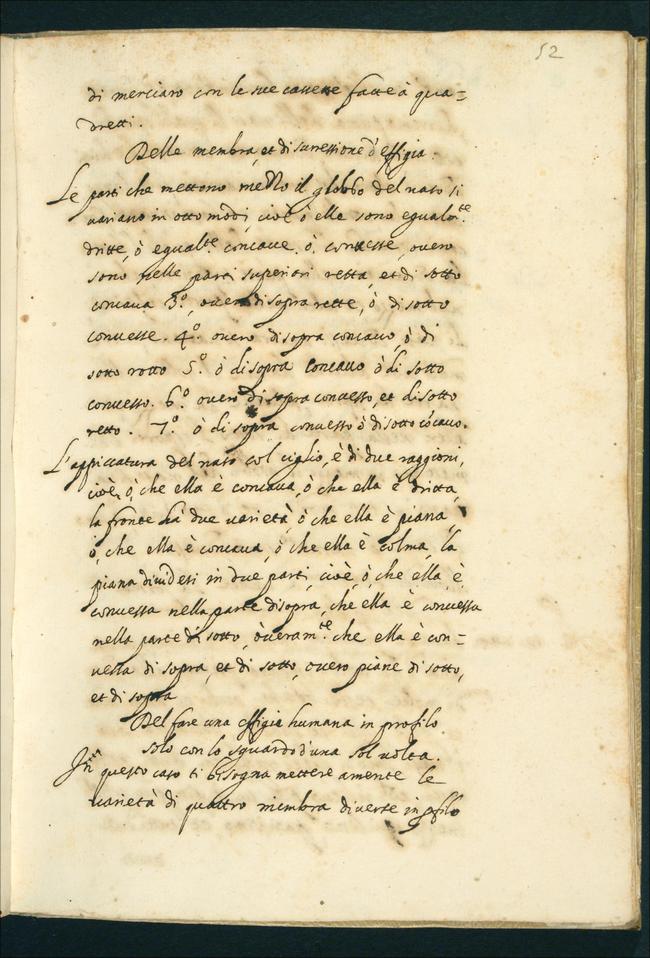 52
di merciaro con le sue cassette fatte à qua=
dretti.
Delle membra, et di scressione d'effigia.
Le parti che mettono mezzo il globbo del naso si
uariano in otto modi, cioè ò elle sono egualm.te
dritte, ò egual.te concaue. ò conuesse, ouero
sono nelle parti superiori retta, et di sotto
concaua 3.º, ouero di sopra rette, ò di sotto
conuesse. 4.º ouero di sopra concauo, ò di
sotto rotto 5.º ò di sopra concauo ò di sotto
conuesso. 6.º ouero di sopra conuesso, et di sotto
retto. 7.º ò di sopra conuesso ò di sotto cócauo.
L'appiccatura del naso col ciglio, è di due raggioni,
cioè, ò, che ella è concaua, ò che ella è dritta,
la fronte hà due uarietà, ò che ella è piana,
ò, che ella è concaua, ò che ella è colma, la
piana diuidesi in due parti, cioè, ò, che ella, è
conuessa nella parte di sopra, che ella è conuessa
nella parte di sotto, òueram.te che ella è con=
uessa di sopra, et di sotto, ouero piane di sotto,
et di sopra
Del fare una effigia humana in profilo
solo con lo sguardo d'una sol uolta.
In questo caso ti bisogna mettere amente le
uarietà di quattro membra diuerse in pfilo